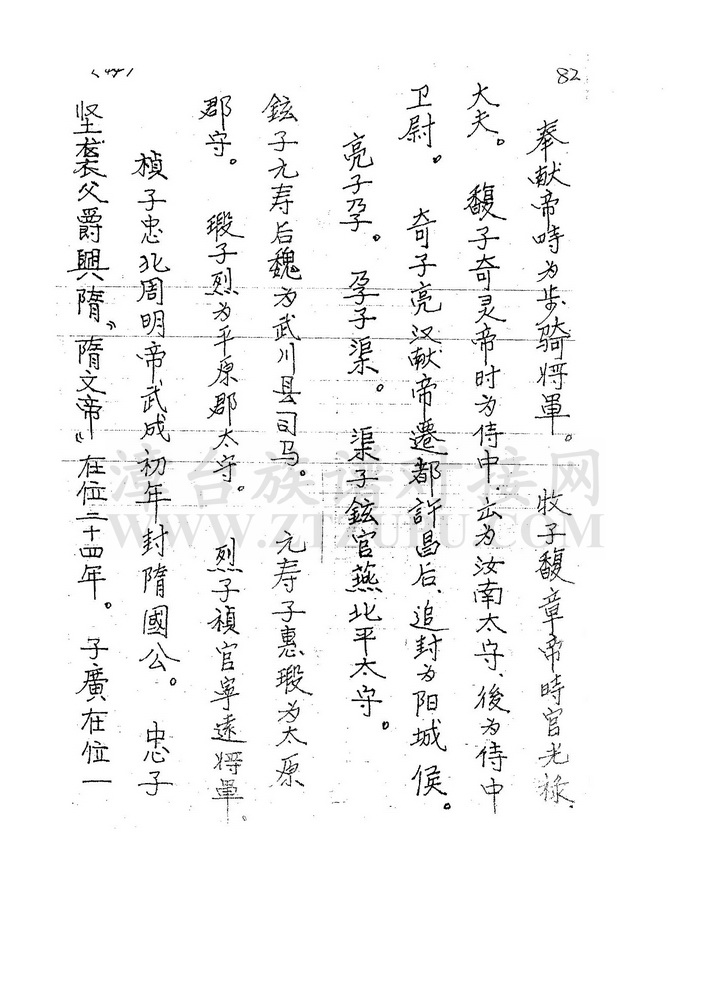 82
奉献帝時为步骑将軍。 牧子馥章帝時官光祿
大夫。 馥子奇灵帝时为侍中、出为汝南太守、後为侍中
卫尉。 奇子亮汉献帝遷都許昌后、追封为阳城侯。
亮子孕。 孕子渠。 渠子鉉官燕北平太守。
鉉子元寿后魏为武川县司马。 元寿子惠瑕为太原
郡守。 瑕子烈为平原郡太守。 烈子禎官寧遠将軍。
楨子忠北周明帝武成初年封隋國公。 忠子
坚袭父爵興隋“隋文帝”在位二十四年。 子廣在位一
漳台族谱对接网
WWW.ZTZUPU.COM